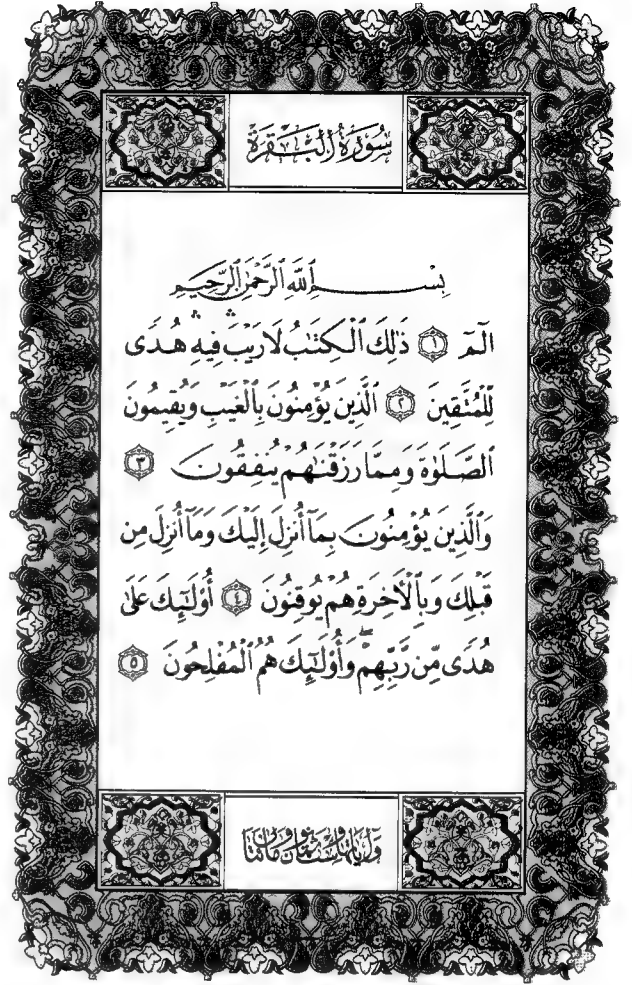 سُورَةُ ٱلْبَقَرَةِ
بِسْمِ ٱللَّهِ ٱلرَّحْمَٰنِ ٱلرَّحِيمِ
الٓمٓ ١ ذَٰلِكَ ٱلْكِتَٰبُ لَا رَيْبَ ۛ فِيهِ ۛ هُدًى
لِّلْمُتَّقِينَ ٢ ٱلَّذِينَ يُؤْمِنُونَ بِٱلْغَيْبِ وَيُقِيمُونَ
ٱلصَّلَوٰةَ وَمِمَّا رَزَقْنَٰهُمْ يُنفِقُونَ ٣
وَٱلَّذِينَ يُؤْمِنُونَ بِمَآ أُنزِلَ إِلَيْكَ وَمَآ أُنزِلَ مِن
قَبْلِكَ وَبِٱلْءَاخِرَةِ هُمْ يُوقِنُونَ ٤ أُو۟لَٰٓئِكَ عَلَىٰ
هُدًى مِّن رَّبِّهِمْ ۖ وَأُو۟لَٰٓئِكَ هُمُ ٱلْمُفْلِحُونَ ٥